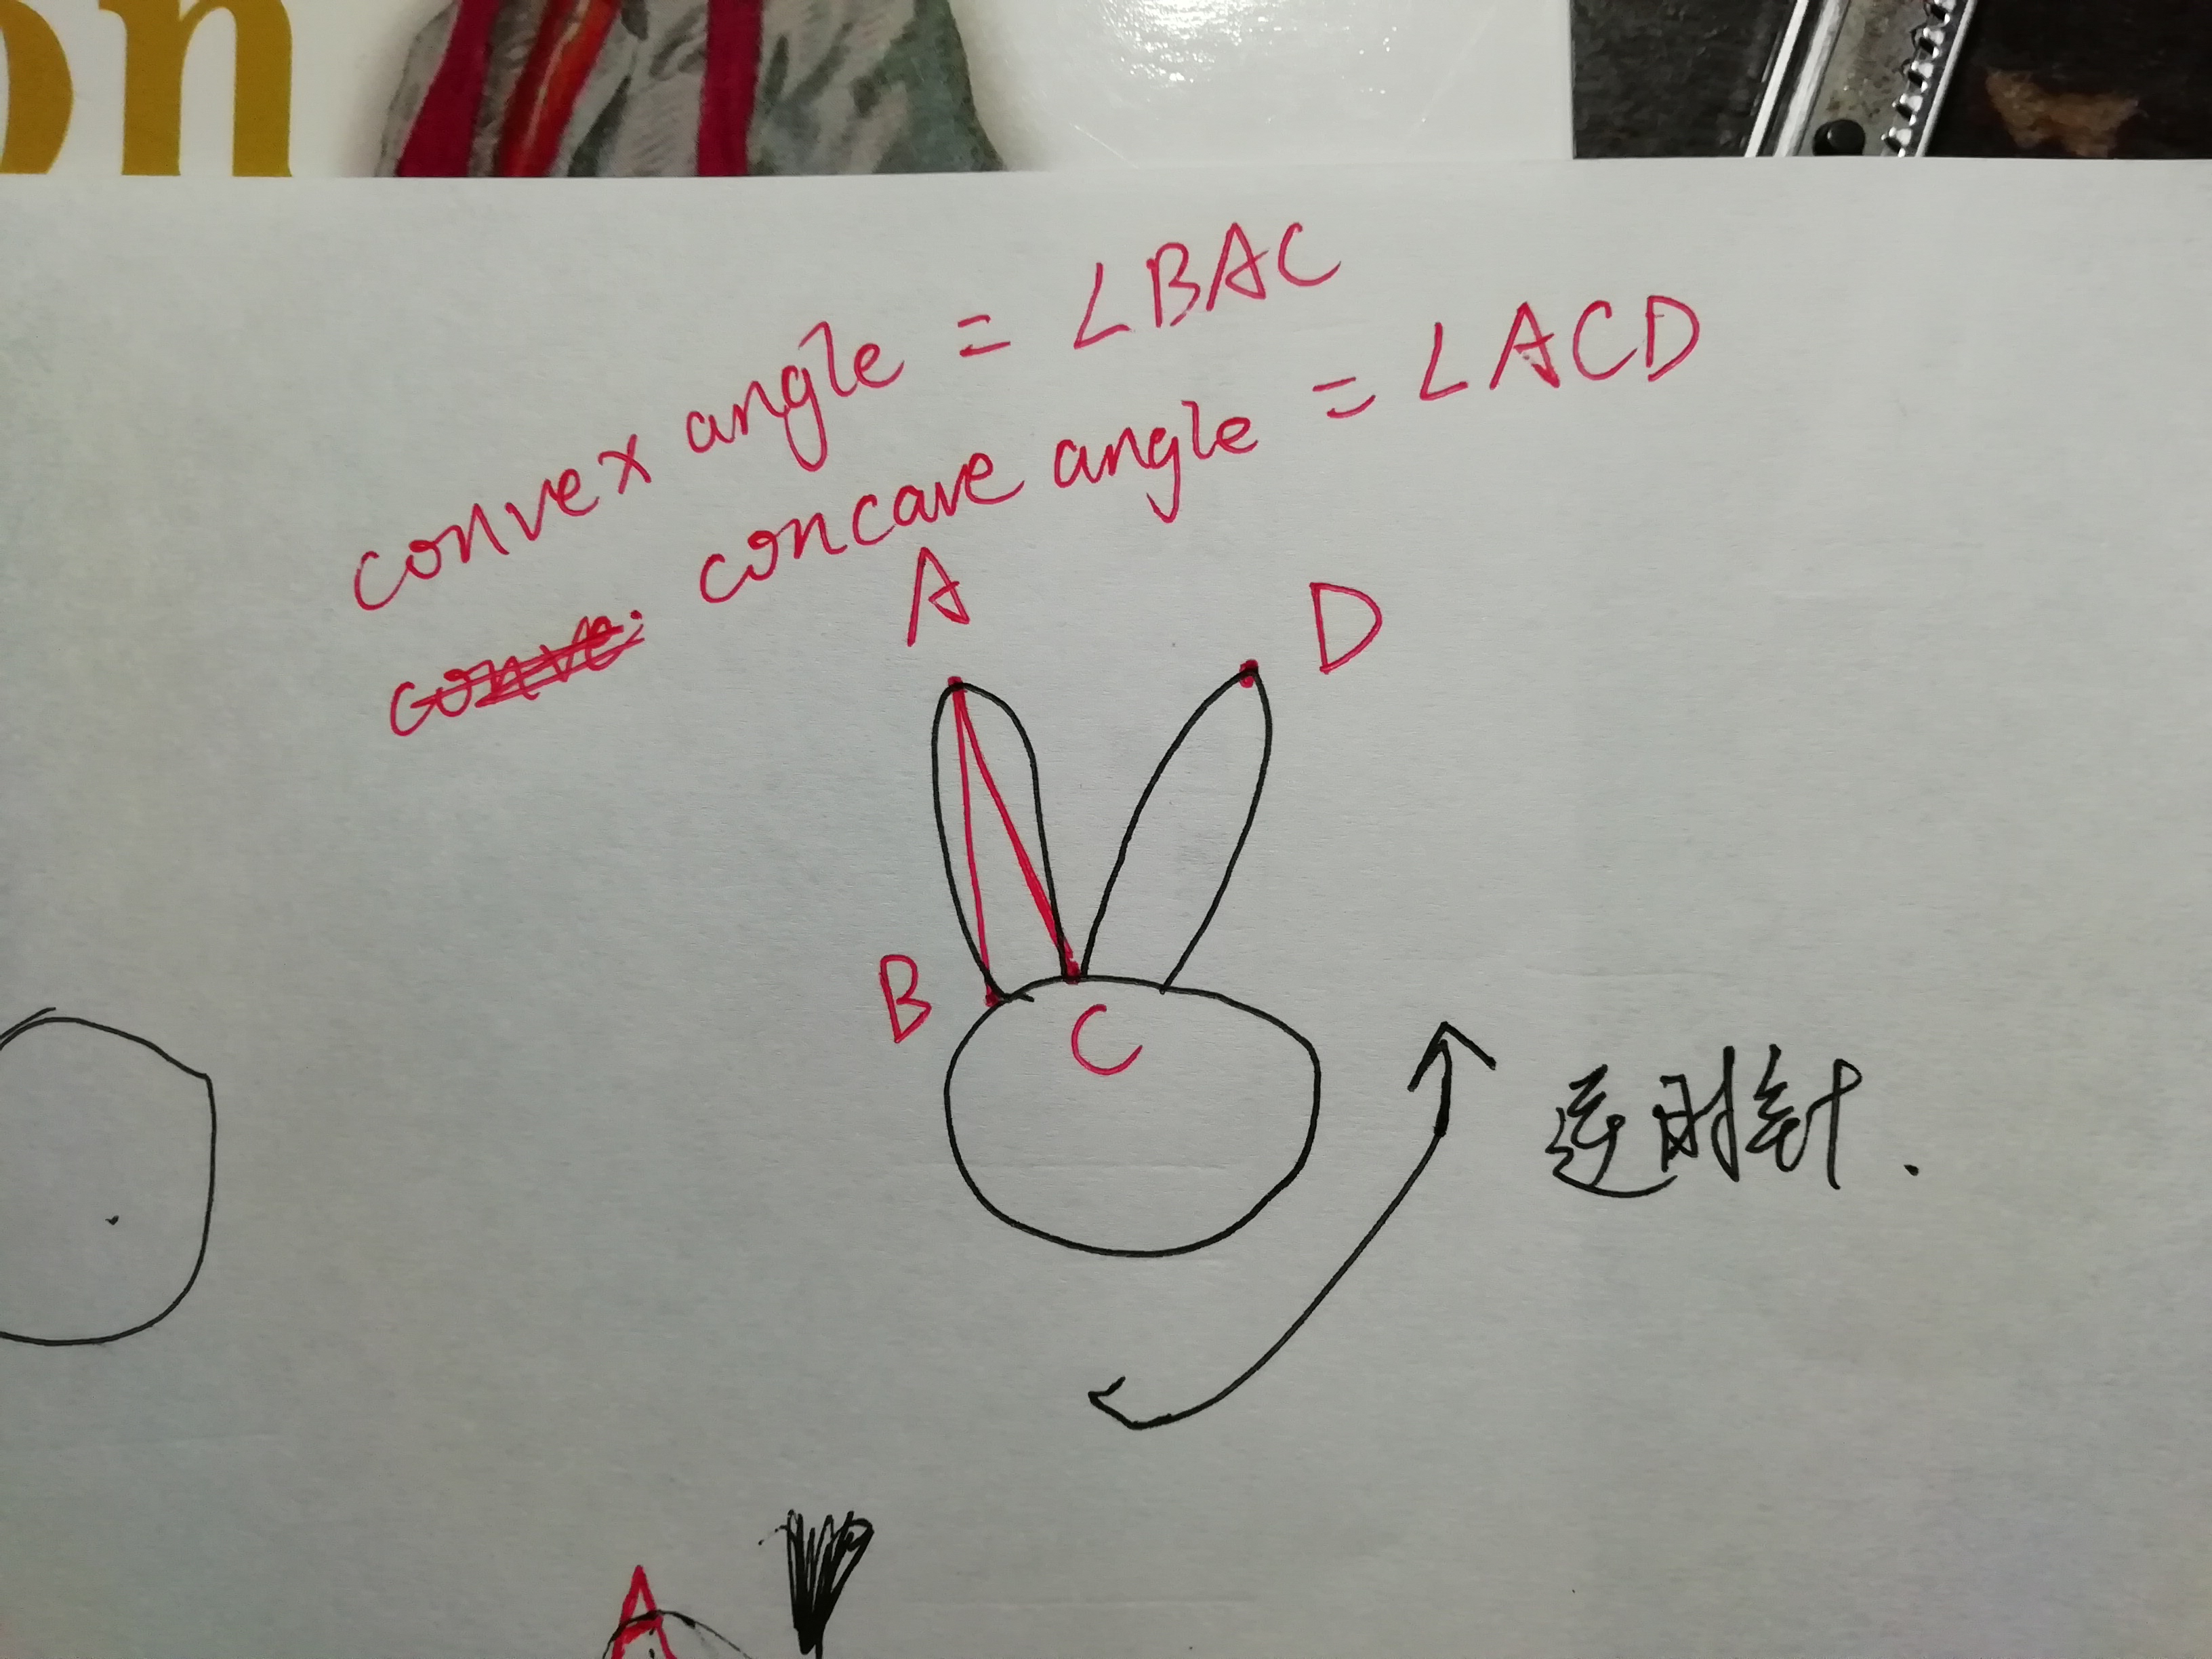 on
convex angle = ∠BAC
conve. concave angle = ∠ACD
A
D
B
C
逆时针.
A